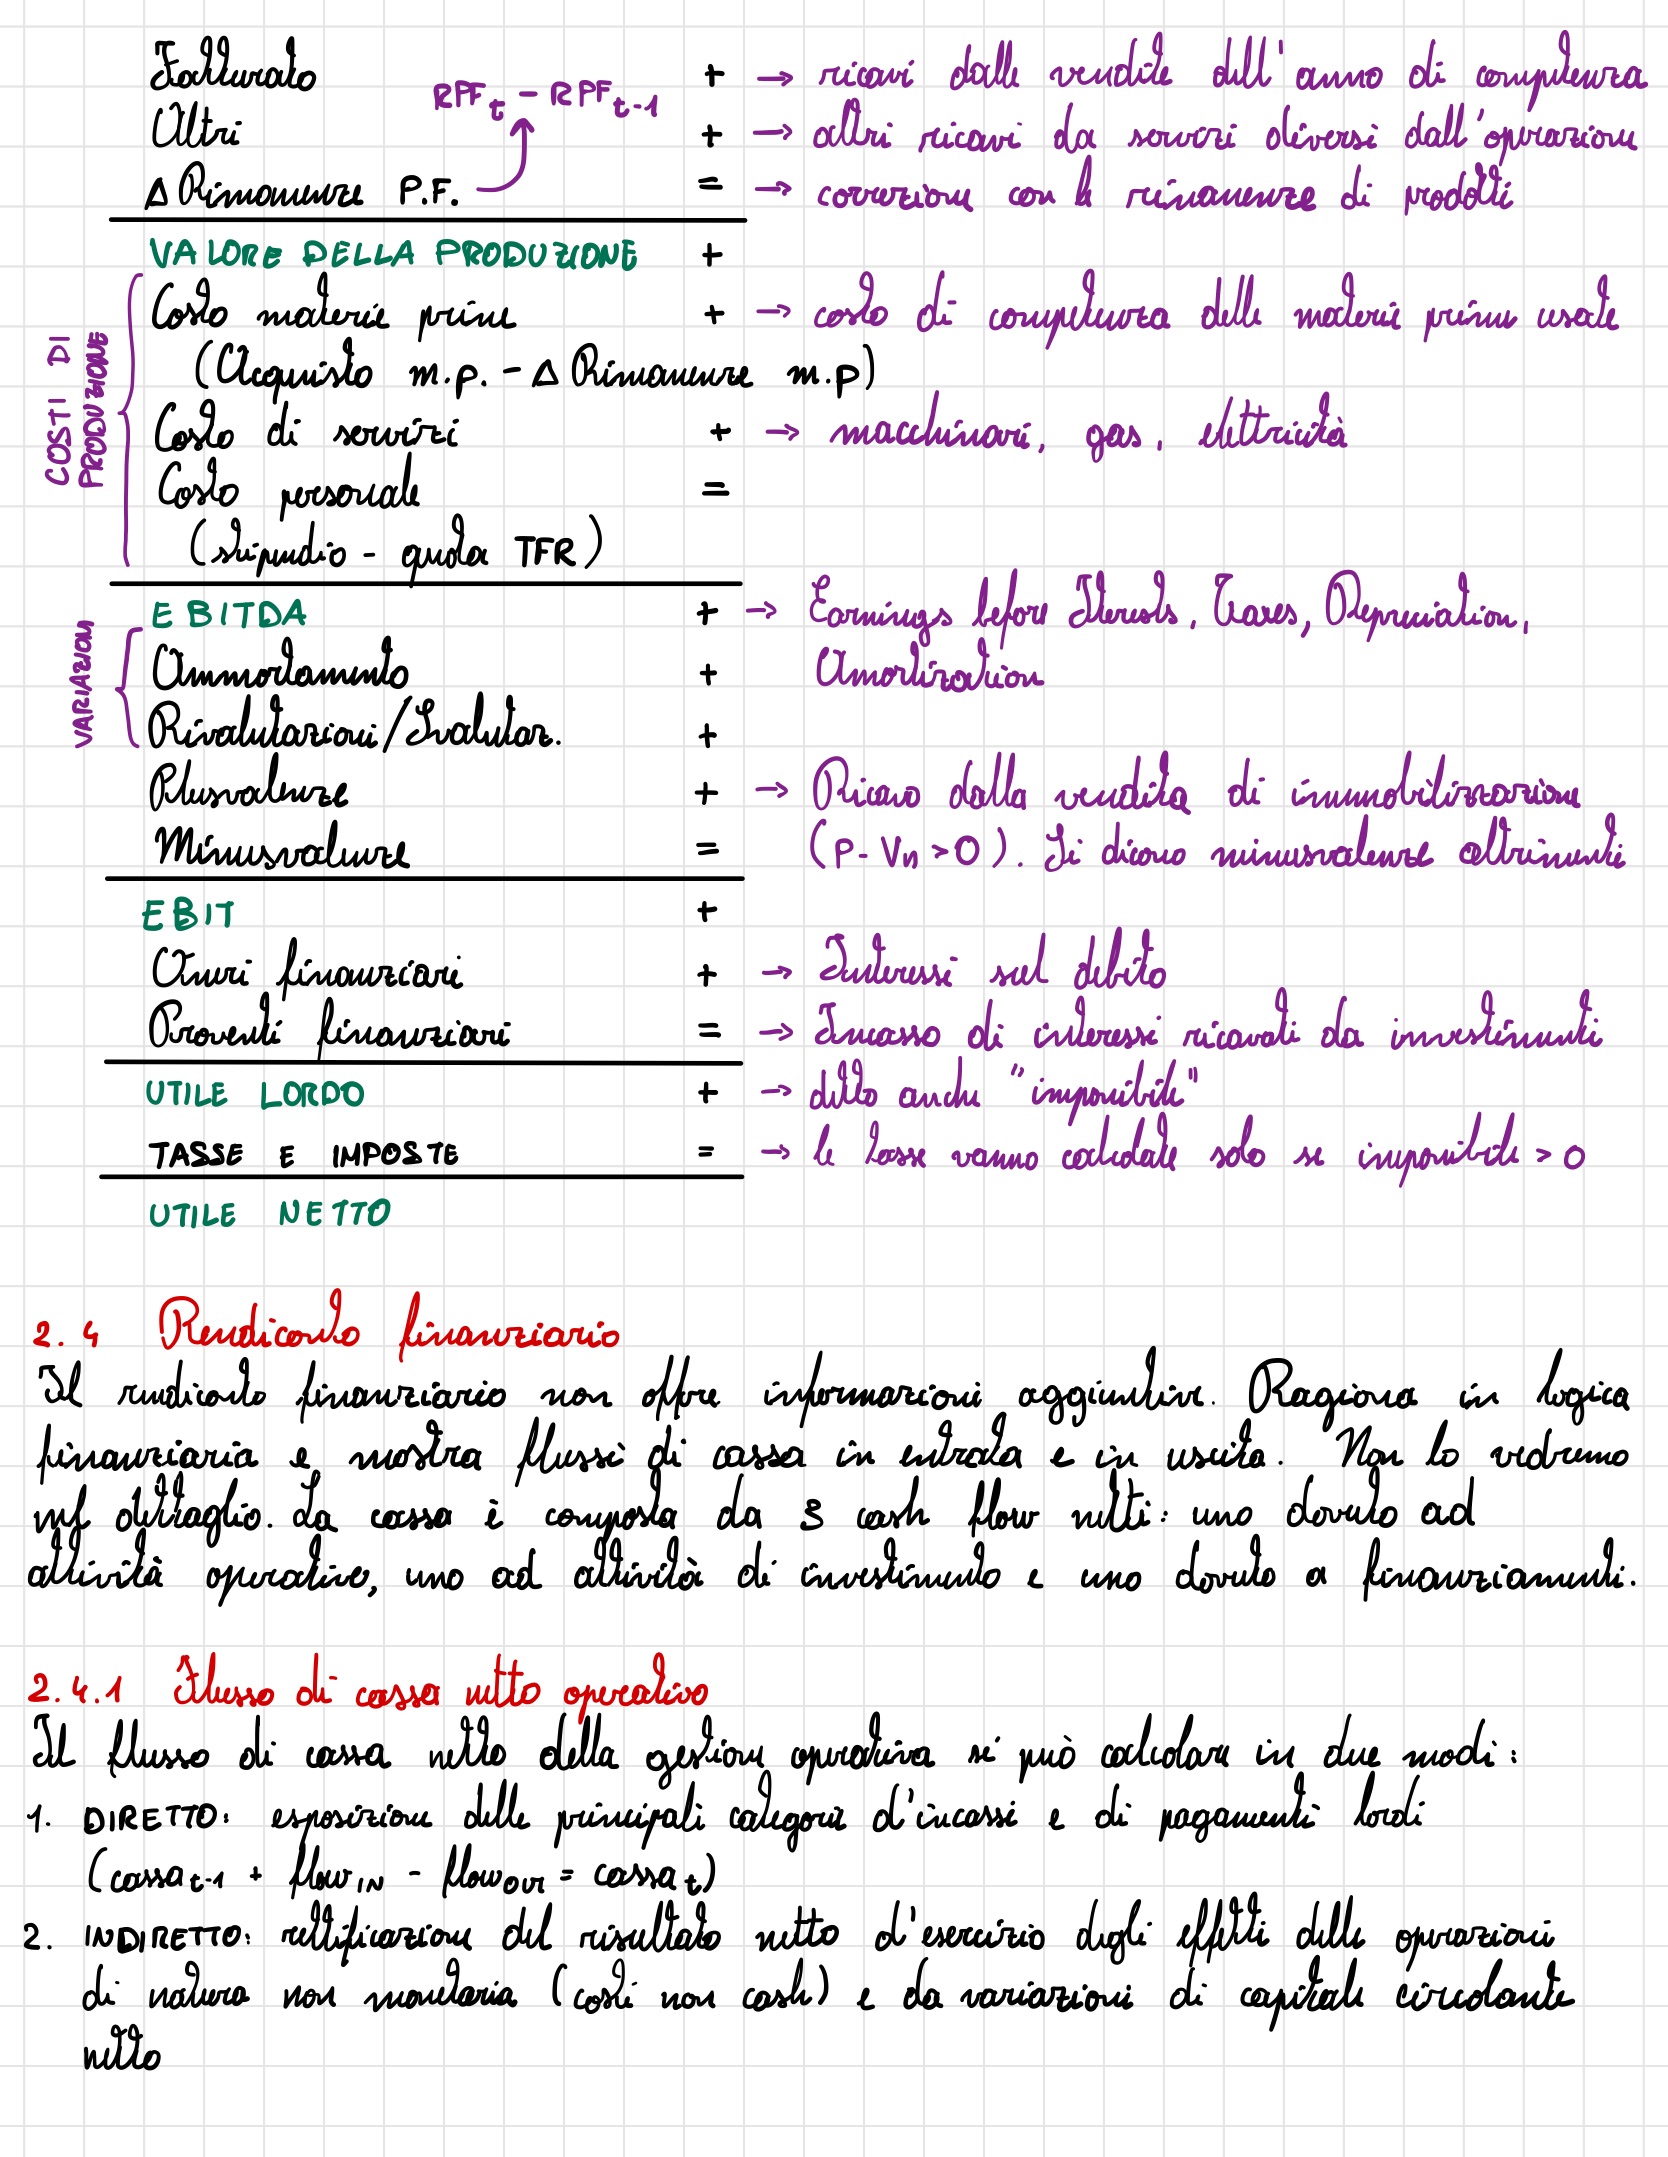 Fatturato + → ricavi dalle vendite dell'anno di competenza
RPFt - RPFt-1
Altri + → altri ricavi da servizi diversi dall'operazione
Δ Rimanenze P.F. = → correzione con le rimanenze di prodotti
VALORE DELLA PRODUZIONE +
COSTI DI PRODUZIONE
Costo materie prime + → costo di competenza delle materie prime usate
(Acquisto m.p. - Δ Rimanenze m.p)
Costo di servizi + → macchinari, gas, elettricità
Costo personale =
(stipendio - quota TFR)
EBITDA + → Earnings before Iterests, Taxes, Depreciation,
VARIAZIONI
Ammortamento + Amortization
Rivalutazioni/Svalutaz. +
Plusvalenze + → Ricavo dalla vendita di immobilizzazione
Minusvalenze = (P - Vn > 0). Si dicono minusvalenze altrimenti
EBIT +
Oneri finanziari + → Interessi sul debito
Proventi finanziari = → Incasso di interessi ricavati da investimenti
UTILE LORDO + → detto anche "imponibile"
TASSE E IMPOSTE = → le tasse vanno calcolate solo se imponibile > 0
UTILE NETTO
2.4 Rendiconto finanziario
Il rendiconto finanziario non offre informazioni aggiuntive. Ragiona in logica
finanziaria e mostra flussi di cassa in entrata e in uscita. Non lo vedremo
nel dettaglio. La cassa è composta da 3 cash flow netti: uno dovuto ad
attività operative, uno ad attività di investimento e uno dovuto a finanziamenti.
2.4.1 Flusso di cassa netto operativo
Il flusso di cassa netto della gestione operativa si può calcolare in due modi:
1. DIRETTO: esposizione delle principali categorie d'incassi e di pagamenti lordi
(cassa t-1 + flow IN - flow OUT = cassa t)
2. INDIRETTO: rettificazione del risultato netto d'esercizio degli effetti delle operazioni
di natura non monetaria (costi non cash) e da variazioni di capitale circolante
netto